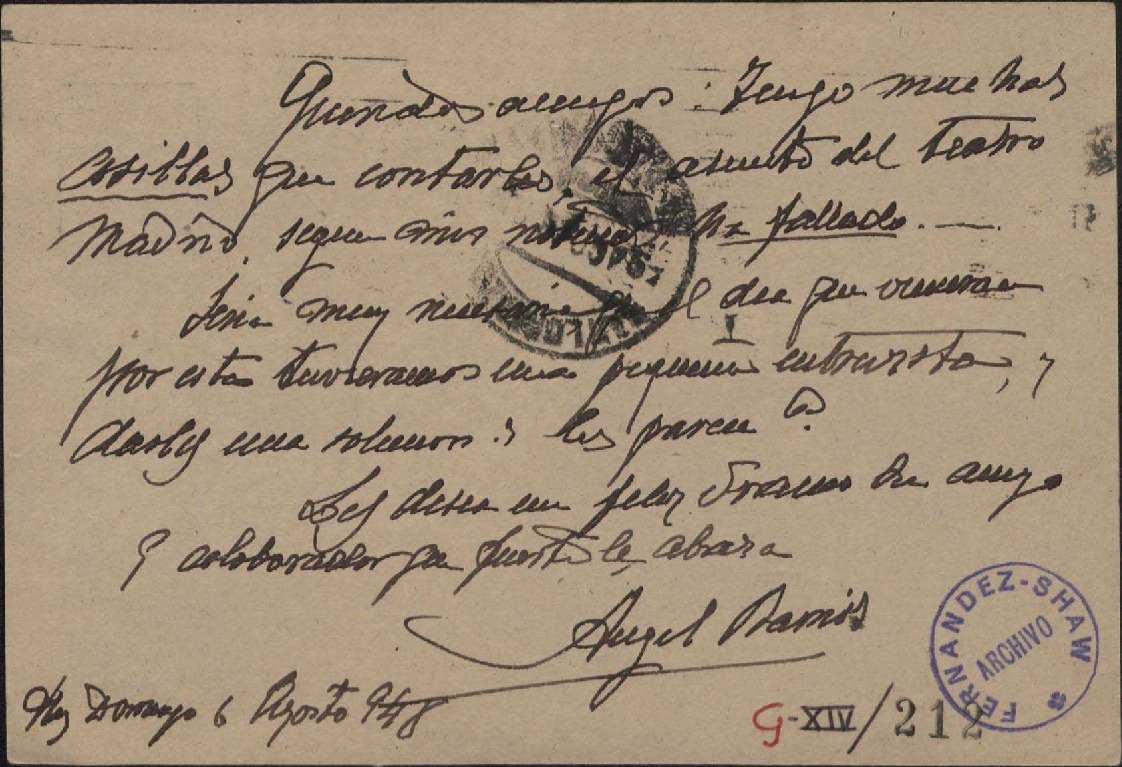 Queridos amigos: Tengo muchas
cosillas que contarles, el asunto del teatro
Madrid, segun mis noticias, ha fallado. —
Seria muy necesario que el dia que vinieran
por esta tuvieramos una pequeña entrevista, y
darles una solucion. ¿ les parece ?
Les desea un feliz Verano su amigo
y colaborador que fuerte les abraza
Angel Barrios
Hoy Domingo 6 Agosto
FERNANDEZ-SHAW
ARCHIVO
G-XIV/212